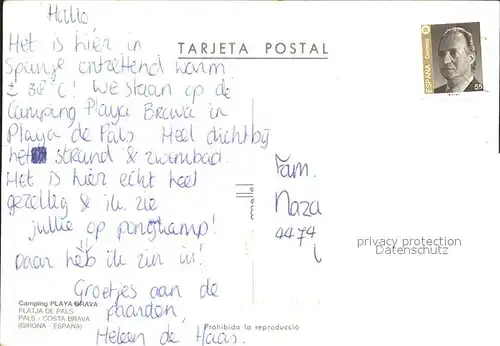 Hallo
Het is hier in
Spanje ontzettend warm
± 38°C! We staan op de
Camping Playa Brava in
Playa de Pals Heel dichtbij
het strand & zwembad.
Het is hier echt heel
gezellig & ik zie
jullie op ponykamp!
Daar heb ik zin in!
Groetjes aan de
paarden,
Heleen de Haas.
TARJETA POSTAL
ESPAÑA
CORREOS
55
Fam.
Naza
4474
privacy protection
Datenschutz
Camping PLAYA BRAVA
PLATJA DE PALS
PALS - COSTA BRAVA
(GIRONA - ESPAÑA)
Prohibida la reproducció